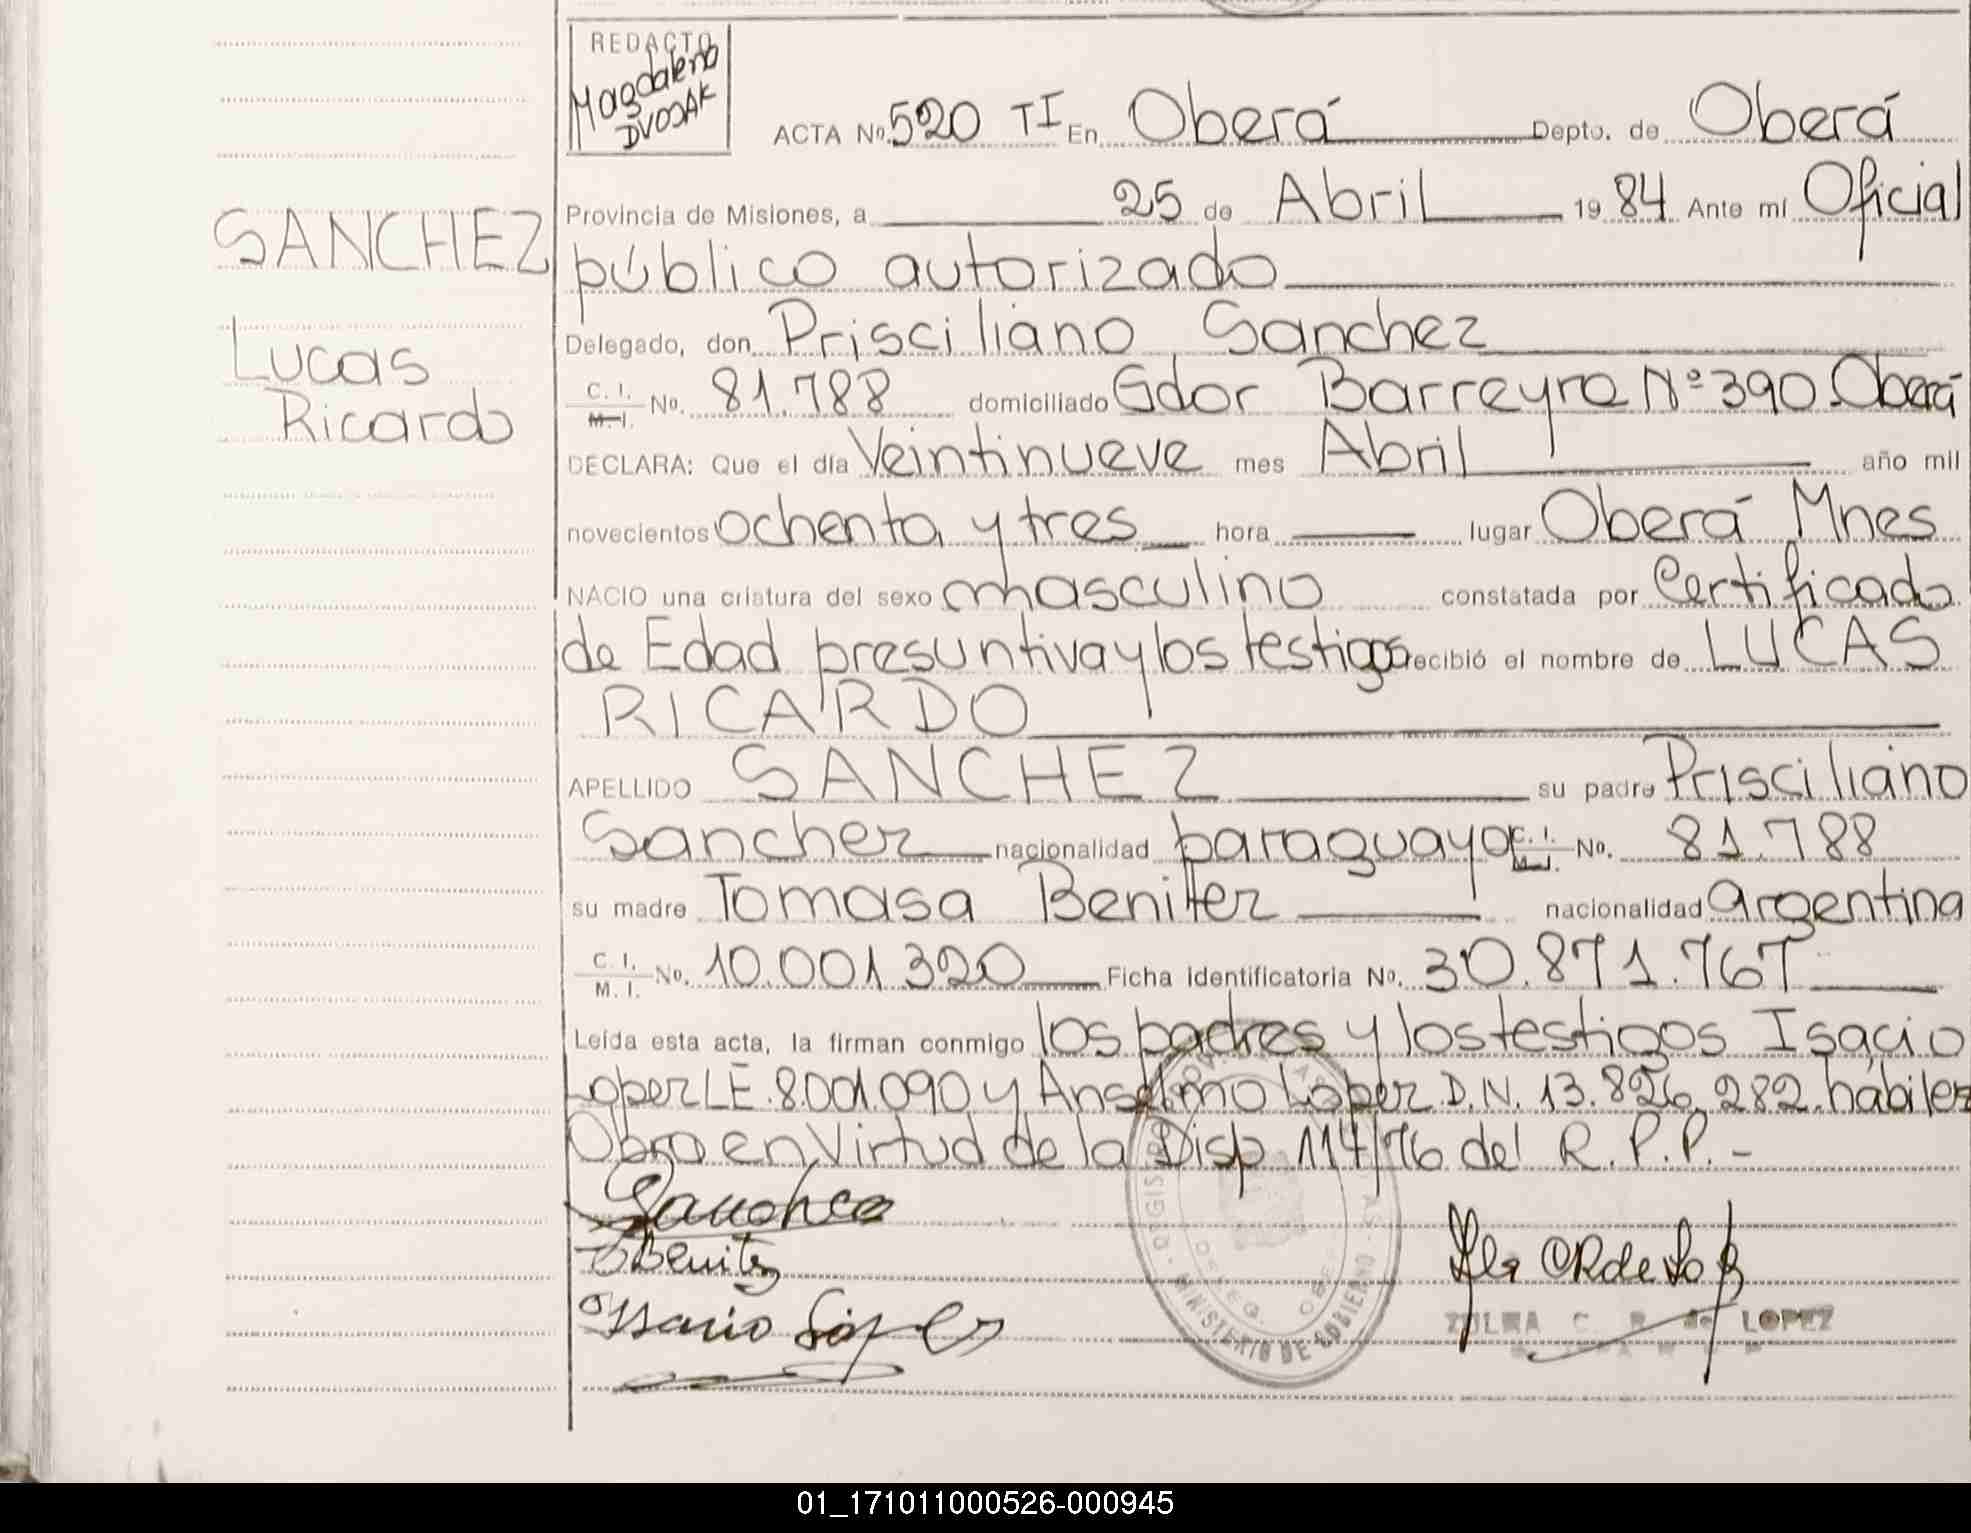 REDACTO
Magdalena
DVOJAK
ACTA No. 520 TI En Oberá Depto. de Oberá
Provincia de Misiones, a 25 de Abril 19 84 Ante mí Oficial
público autorizado
Delegado, don Prisciliano Sanchez
C. I. M. I. No. 81.788 domiciliado Gdor Barreyro Nº 390 Oberá
DECLARA: Que el día Veintinueve mes Abril año mil
novecientos ochenta y tres hora lugar Oberá Mnes
NACIO una criatura del sexo masculino constatada por Certificado
de Edad presuntiva y los testigos recibió el nombre de LUCAS
RICARDO
APELLIDO SANCHEZ su padre Prisciliano
Sanchez nacionalidad paraguayo C. I. M. I. No. 81.788
su madre Tomasa Benitez nacionalidad argentina
C. I. M. I. No. 10.001.320 Ficha identificatoria No. 30.871.767
Leída esta acta, la firman conmigo los padres y los testigos Isacio
Lopez LE. 8.001.090 y Anselmo Lopez D.N. 13.826.282. hábiles
Obro en Virtud de la Disp 114/76 del R.P.P.-
SANCHEZ
Lucas
Ricardo
TBenitez
MINISTERIO DE GOBIERNO
ZULMA C. R. de LOPEZ
01_171011000526-000945